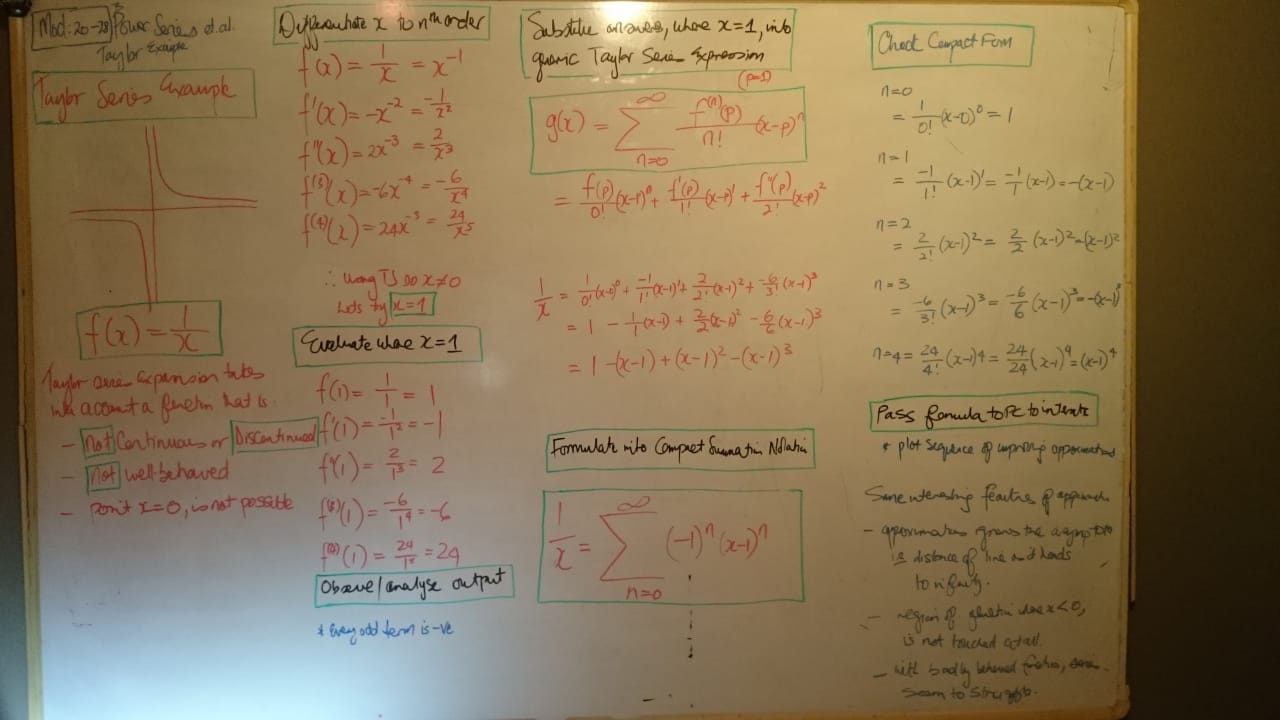 Mod: 20-28 Power Series et.al.
Taylor Example
Taylor Series Example
f(x) = 1/x
Taylor series expansion takes
into account a function that is:
- Not Continuous or Discontinued
- Not well-behaved
- Point x=0, is not possible
Differentiate x to nth order
f(x) = 1/x = x⁻¹
f'(x) = -x⁻² = -1/x²
f''(x) = 2x⁻³ = 2/x³
f⁽³⁾(x) = -6x⁻⁴ = -6/x⁴
f⁽⁴⁾(x) = 24x⁻⁵ = 24/x⁵
∴ using TS so x≠0
Lets try x=1
Evaluate where x=1
f(1) = 1/1 = 1
f'(1) = -1/1² = -1
f''(1) = 2/1³ = 2
f⁽³⁾(1) = -6/1⁴ = -6
f⁽⁴⁾(1) = 24/1⁵ = 24
Observe/analyse output
* Every odd term is -ve
Substitute answers, where x=1, into
generic Taylor Series Expression
(p=1)
g(x) = ∑ n=0 ∞ f⁽ⁿ⁾(p)/n! (x-p)ⁿ
= f(p)/0! (x-1)⁰ + f'(p)/1! (x-p)¹ + f''(p)/2! (x-p)²
1/x = 1/0! (x-1)⁰ + -1/1! (x-1)¹ + 2/2! (x-1)² + -6/3! (x-1)³
= 1 - 1/1 (x-1) + 2/2 (x-1)² - 6/6 (x-1)³
= 1 -(x-1) + (x-1)² -(x-1)³
Formulate into Compact Summation Notation
1/x = ∑ n=0 ∞ (-1)ⁿ (x-1)ⁿ
Check Compact Form
n=0
= 1/0! (x-0)⁰ = 1
n=1
= -1/1! (x-1)¹ = -1/1 (x-1) = -(x-1)
n=2
= 2/2! (x-1)² = 2/2 (x-1)² = (x-1)²
n=3
= -6/3! (x-1)³ = -6/6 (x-1)³ = -(x-1)³
n=4 = 24/4! (x-1)⁴ = 24/24 (x-1)⁴ = (x-1)⁴
Pass formula to PC to iterate
* plot sequence of improving approximations
Some interesting features of approach
- approximation ignores the asymptote
is distance of line and heads
to infinity.
- region of function where x<0,
is not touched at all.
- with badly behaved function,
seem to struggle.